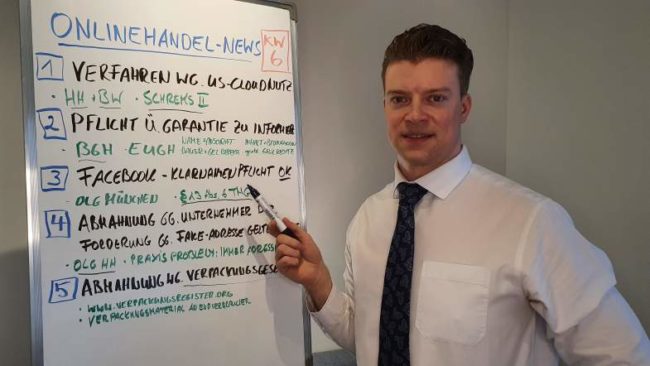 ONLINEHANDEL-NEWS
KW
6
1 VERFAHREN WG. US-CLOUDNUTZ
· HH + BW · SCHREMS II
2 PFLICHT Ü. GARANTIE ZU INFORMIER
· BGH · EUGH
3 FACEBOOK-KLARNAMENPFLICHT OK
· OLG MÜNCHEN · § 13 Abs. 6 TMG
4 ABMAHNUNG GG. UNTERNEHMER
FORDERUNG GG. FAKE-ADRESSE GELT
· OLG HH · PRAXIS IMMER
5 ABMAHNUNG WG. VERPACKUNGSGESE
· WWW.VERPACKUNGSREGISTER.ORG
· VERPACKUNGSMATERIAL